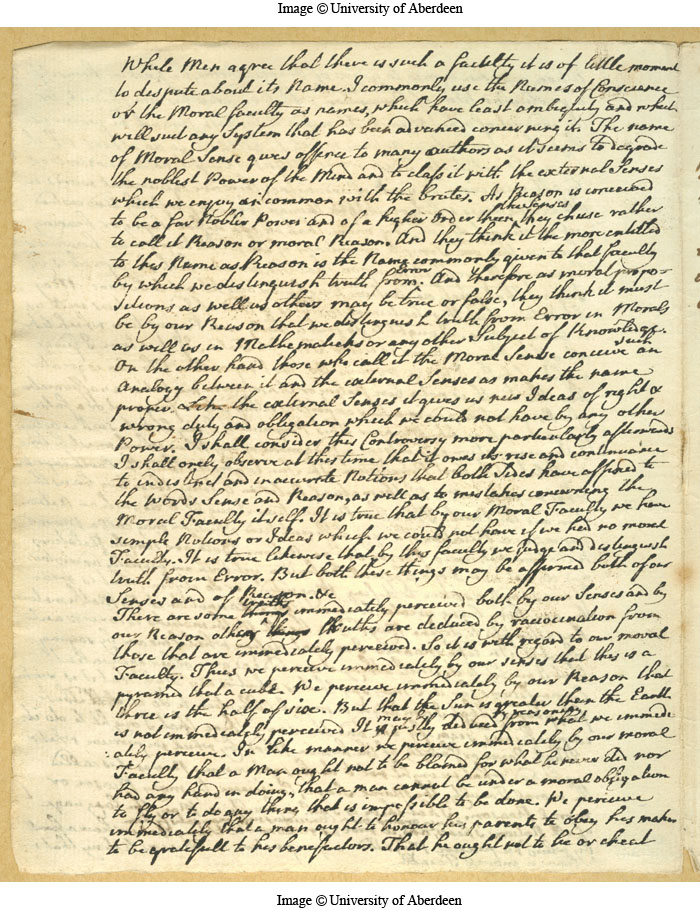 Image © University of Aberdeen
While Men agree that there is such a faculty it is of little moment
to dispute about its Name. I commonly use the Names of Conscience
or the Moral faculty as names, which have least ambiguity and which
will suit any System that has been advanced concerning it. The name
of Moral Sense gives offence to many authors as it seems to degrade
the noblest Power of the Mind and to class it with the external Senses
which we enjoy in common with the brutes. As Reason is conceived
to be a far Nobler Power and of a higher Order then the Senses they chuse rather
to call it Reason or moral Reason. And they think it the more entitled
to this Name as Reason is the Name commonly given to that faculty
by which we distinguish truth from Error. And therefore as moral propo-
sitions as well as others may be true or false, they think it must
be by our Reason that we distinguish truth from Error in Morals
as well as in Mathematicks or any other Subject of Knowledge.
On the other hand those who call it the Moral Sense conceive such an
Analogy between it and the external Senses as makes the name
proper. Like the external Senses it gives us new Ideas of right &
wrong duty and obligation which we could not have by any other
Power. I shall consider this Controversy more particularly afterwards
I shall onely observe at this time that it owes its rise and continuance
to indistinct and inaccurate Notions that both Sides have affixed to
the words Sense and Reason, as well as to mistakes concerning the
Moral Faculty itself. It is true that by our Moral Faculty we have
simple Notions or Ideas which we could not have if we had no moral
Faculty. It is true likewise that by this faculty we judge and distinguish
truth from Error. But both these things may be affirmed both of our
Senses and of Reason. &c
There are some truths immediately perceived both by our Senses and by
our Reason other truths are deduced by ratiocination from
those that are immediately perceived. So it is with regard to our moral
Faculty. Thus we perceive immediately by our senses that this is a
pyramid that a cube. We perceive immediately by our Reason that
three is the half of six. But that the Sun is greater then the Earth
is not immediately perceived It may be justly deduced by reasoning from what we immedi
ately perceive. In like manner we perceive immediately by our moral
Faculty that a Man ought not to be blamed for what he never did nor
had any hand in doing, that a man cannot be under a moral obligation
to fly or to do any thing that is impossible to be done. We perceive
immediately that a man ought to honour his parents to obey his maker
to be gratefull to his benefactors. That he ought not to lie or cheat
Image © University of Aberdeen